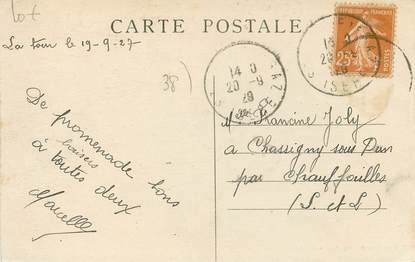 Lot
CARTE POSTALE
La tour le 19-9-27
38)
De promenade bons
baisers
à toutes deux
Marcelle
Francine Joly
à Chassigny sous Dun
par Chauffailles
(S. et L)
14 0
20 -9
ISERE
25c
POSTES